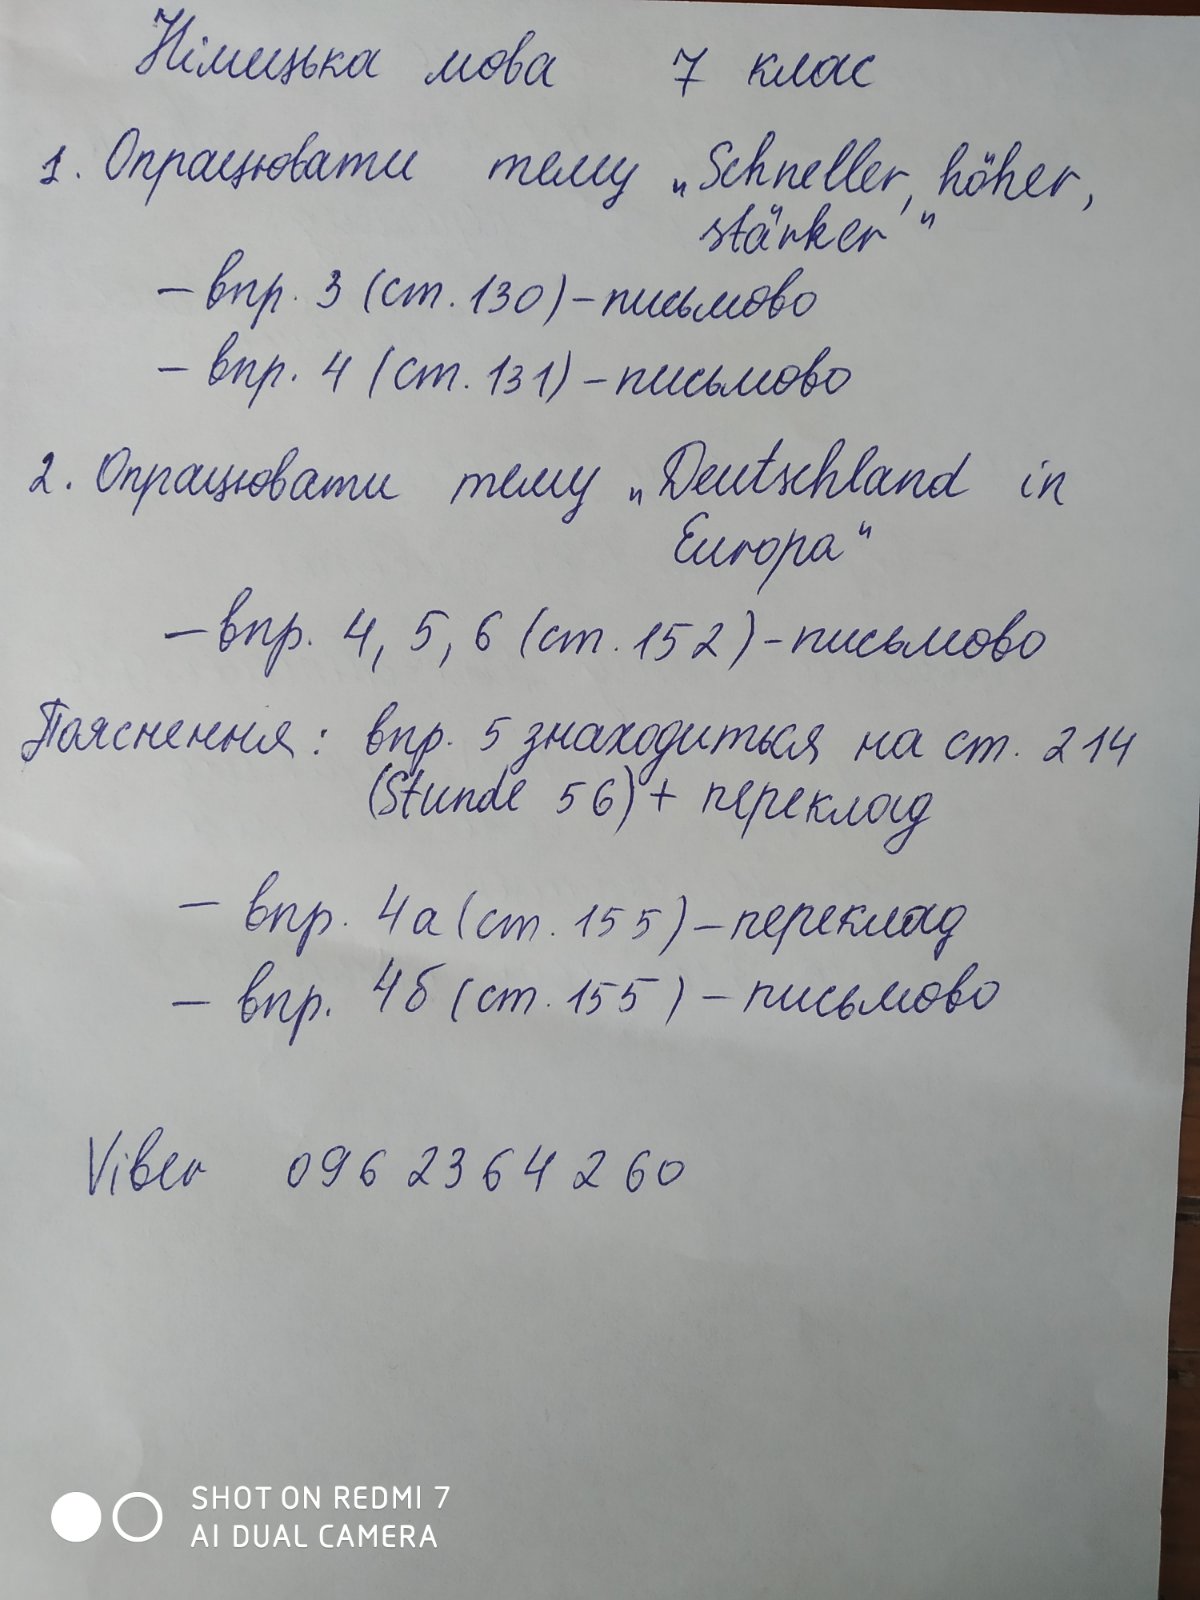 Німицька мова 7 клас
1. Опрацювати тему „Schneller, höher,
stärker"
– впр. 3 (ст. 130) – письмово
– впр. 4 (ст. 131) – письмово
2. Опрацювати тему „Deutschland in
Europa"
– впр. 4, 5, 6 (ст. 152) – письмово
Пояснення: впр. 5 знаходиться на ст. 214
(Stunde 56) + переклад
– впр. 4а (ст. 155) – переклад
– впр. 4б (ст. 155) – письмово
Viber 0962364260
SHOT ON REDMI 7
AI DUAL CAMERA